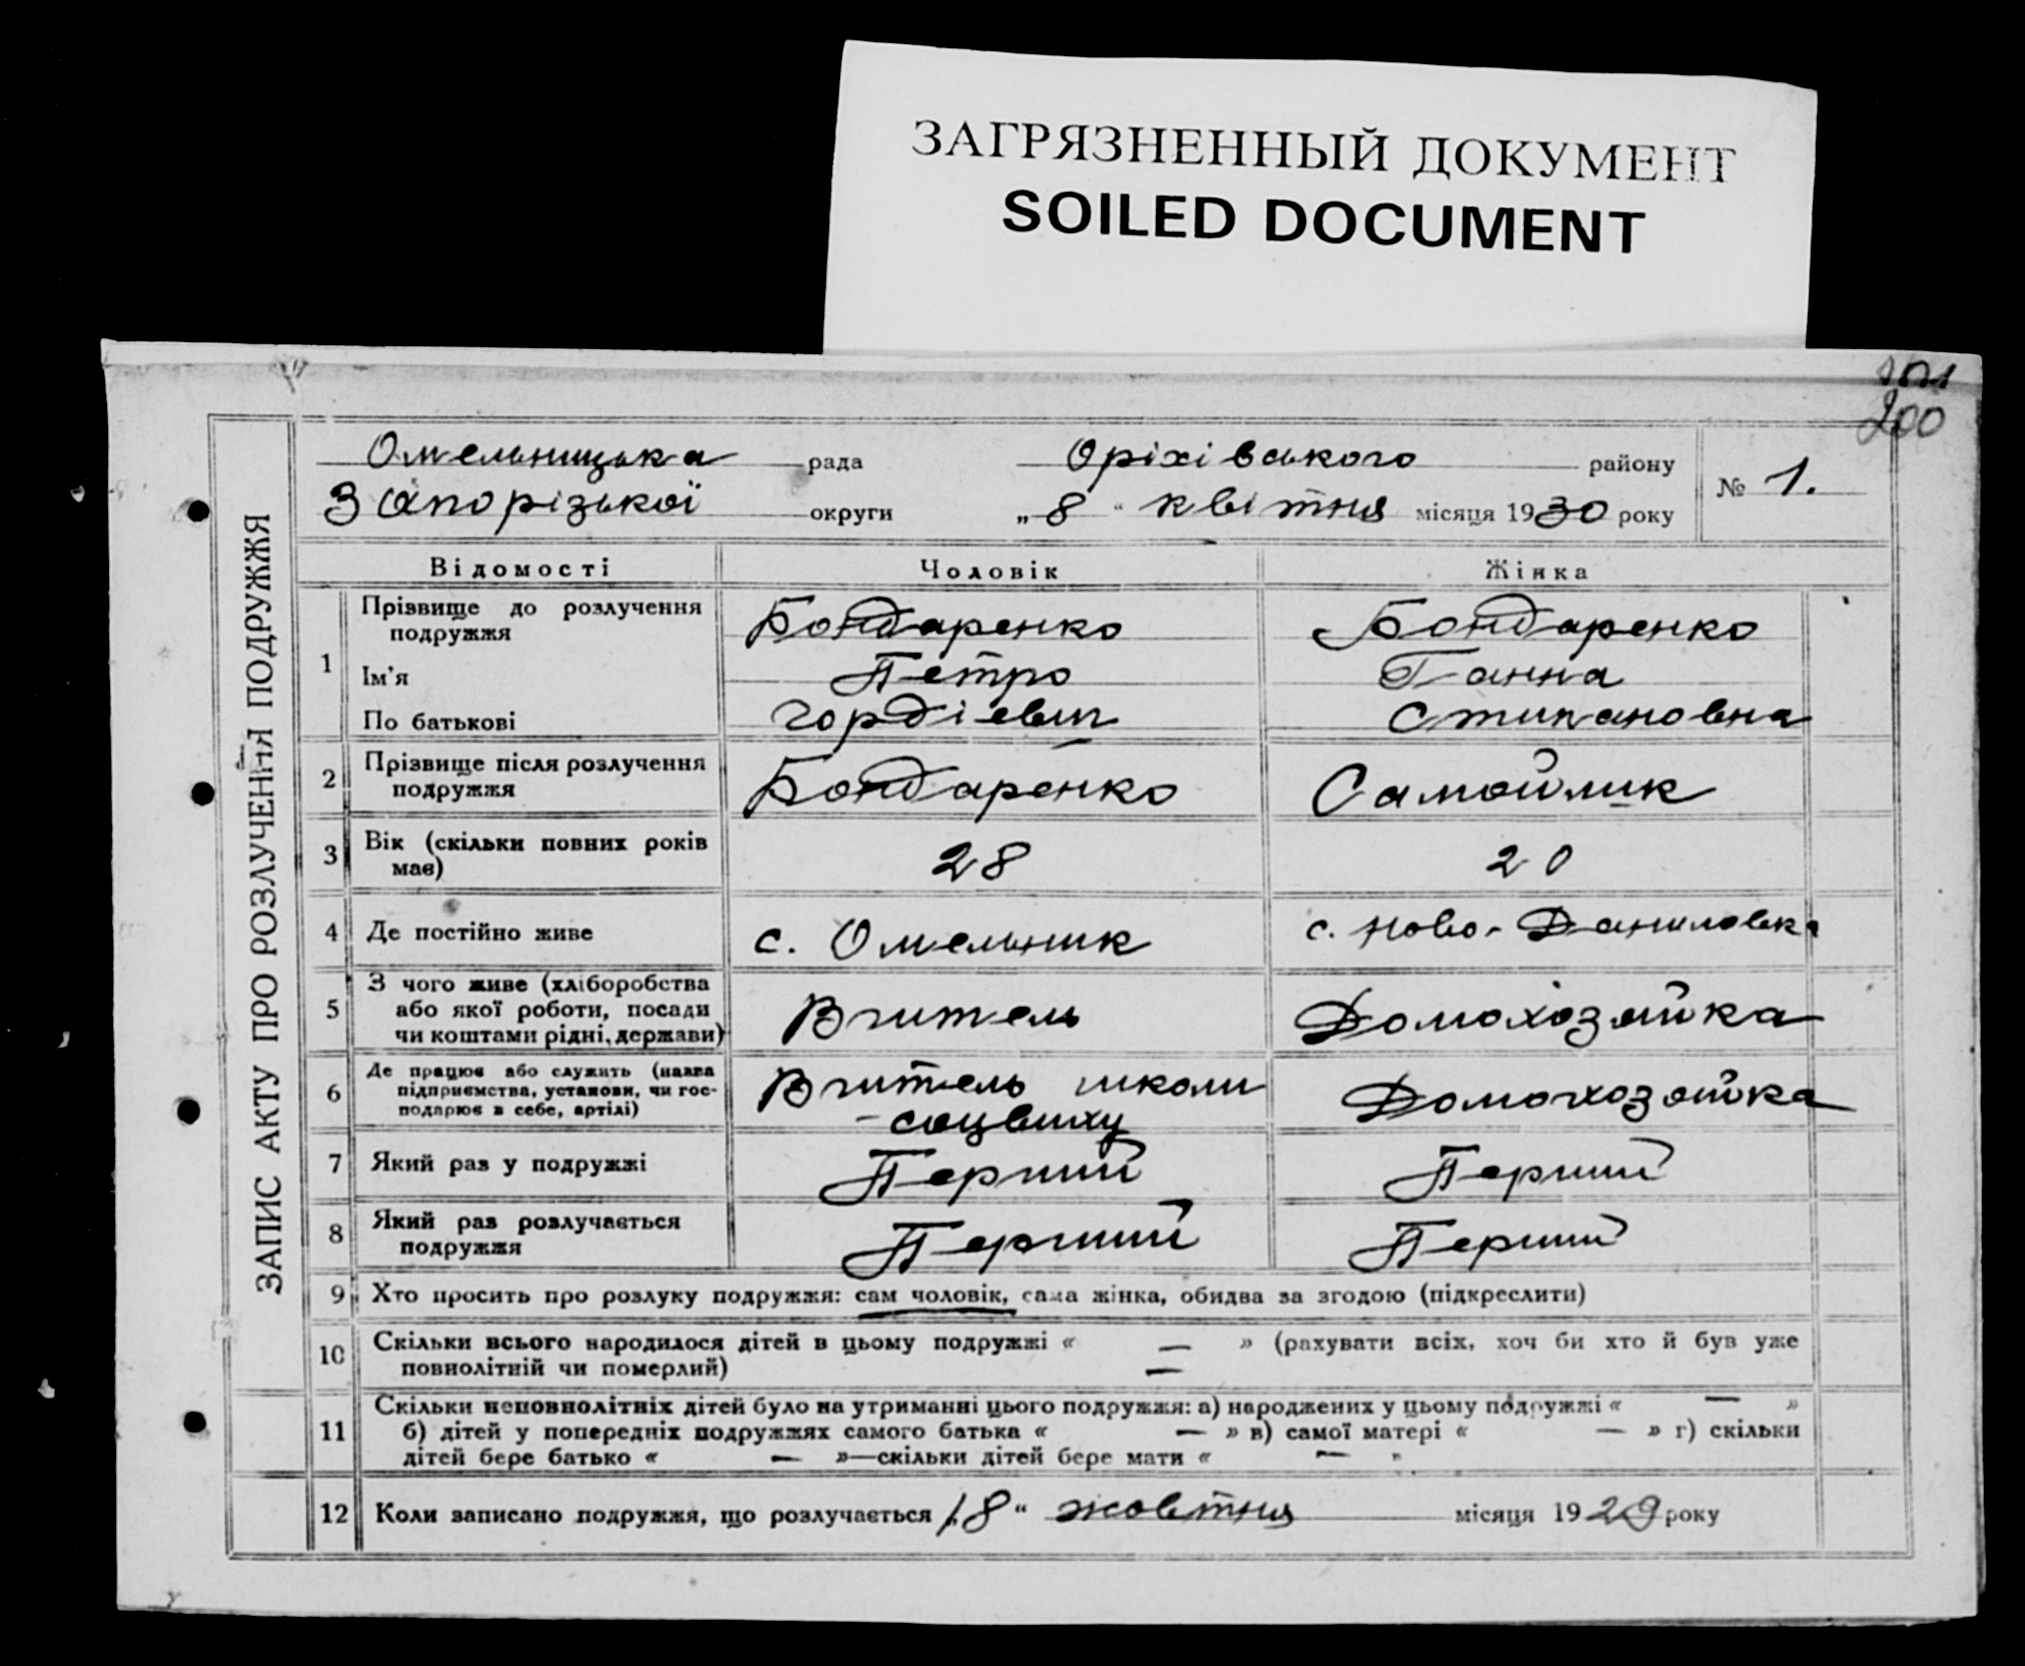 ЗАГРЯЗНЕННЫЙ ДОКУМЕНТ
SOILED DOCUMENT
200
ЗАПИС АКТУ ПРО РОЗЛУЧЕННЯ ПОДРУЖЖЯ
Омельницька рада Оріхівського району № 1.
Запорізької округи „8“ квітня місяця 1930 року
Відомості Чоловік Жінка
1 Прізвище до розлучення подружжя Бондаренко Бондаренко
Ім'я Петро Ганна
По батькові Гордієвич Стипановна
2 Прізвище після розлучення подружжя Бондаренко Самойлик
3 Вік (скільки повних років має) 28 20
4 Де постійно живе с. Омельник с. Ново-Даниловка
5 З чого живе (хліборобства або якої роботи, посади чи коштами рідні, держави) Вчитель Домохозяйка
6 Де працює або служить (назва підприємства, установи, чи господарює в себе, артілі) Вчитель школи - соцвиху Домохозяйка
7 Який раз у подружжі Перший Перший
8 Який раз розлучається подружжя Перший Перший
9 Хто просить про розлуку подружжя: сам чоловік, сама жінка, обидва за згодою (підкреслити)
10 Скільки всього народилося дітей в цьому подружжі « — » (рахувати всіх, хоч би хто й був уже
повнолітній чи померлий) —
11 Скільки неповнолітніх дітей було на утриманні цього подружжя: а) народжених у цьому подружжі « — »
б) дітей у попередніх подружжях самого батька « — » в) самої матері « — » г) скільки
дітей бере батько « — »—скільки дітей бере мати « — »
12 Коли записано подружжя, що розлучається 18 “ жовтня місяця 1929 року